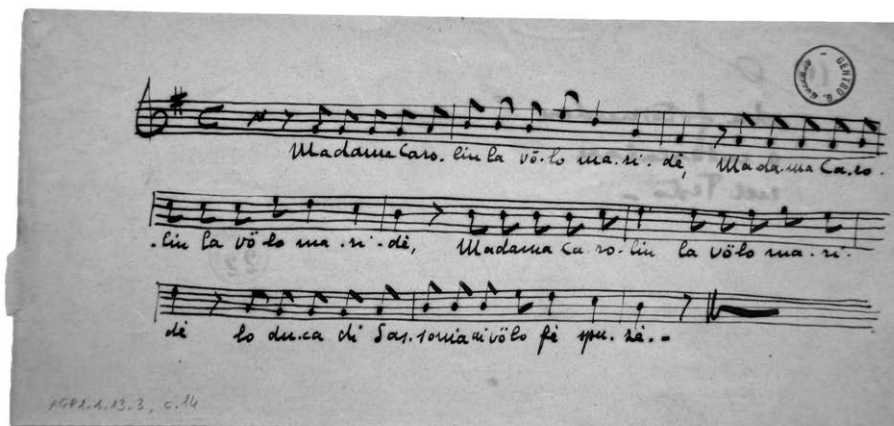 Madama Caro. lin la vö.lo ma.ri.dè, Madama Ca.ro.
.lin la vö.lo ma.ri.dè, Madama Ca.ro.lin la völo ma.ri.
dè lo du.ca di Sas.sonia ai völo fè spu.sè.-
CENTRO
22
AGP1.1.13.3, c.14